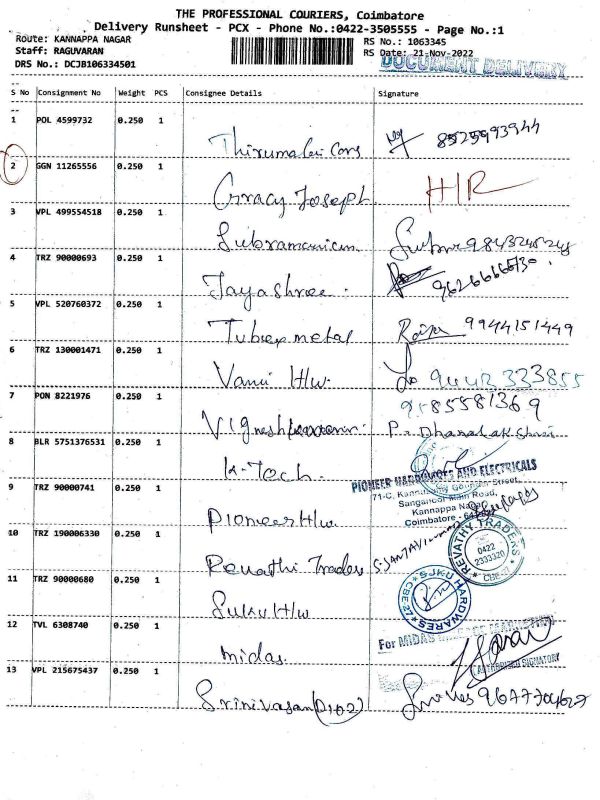 THE PROFESSIONAL COURIERS, Coimbatore
Delivery Runsheet - PCX - Phone No.:0422-3505555 - Page No.:1
Route: KANNAPPA NAGAR
RS No.: 1063345
Staff: RAGUVARAN
RS Date: 21-Nov-2022
DRS No.: DCJB106334501
DOCUMENT DELIVERY
S No Consignment No Weight PCS Consignee Details Signature
1 POL 4599732 0.250 1 Thirumalai Cons 8525993944
2 GGN 11265556 0.250 1 Gracy Joseph H/R
3 VPL 499554518 0.250 1 Subramanian
4 TRZ 90000693 0.250 1 Jayashree
5 VPL 520760372 0.250 1 Tubex metal Raja 9944151449
6 TRZ 130001471 0.250 1 Vani H/w 9442333855
7 PON 8221976 0.250 1 Vignesh P. Dhanalakshmi
8 BLR 5751376531 0.250 1 K-Tech.
PIONEER HARDWARES AND ELECTRICALS
71-C, Kannusamy Gounder Street,
Sanganoor Main Road,
Kannappa Nagar
Coimbatore
9 TRZ 90000741 0.250 1 Pioneer H/w
10 TRZ 190006330 0.250 1 Revathi Traders
REVATHY TRADERS
0422
2333320
CBE
11 TRZ 90000680 0.250 1 Sujku H/w
SJKU HARDWARES
CBE-27
12 TVL 6308740 0.250 1 midas
For MIDAS
AUTHORISED SIGNATORY
13 VPL 215675437 0.250 1 Srinivasan (D102) 9677704627